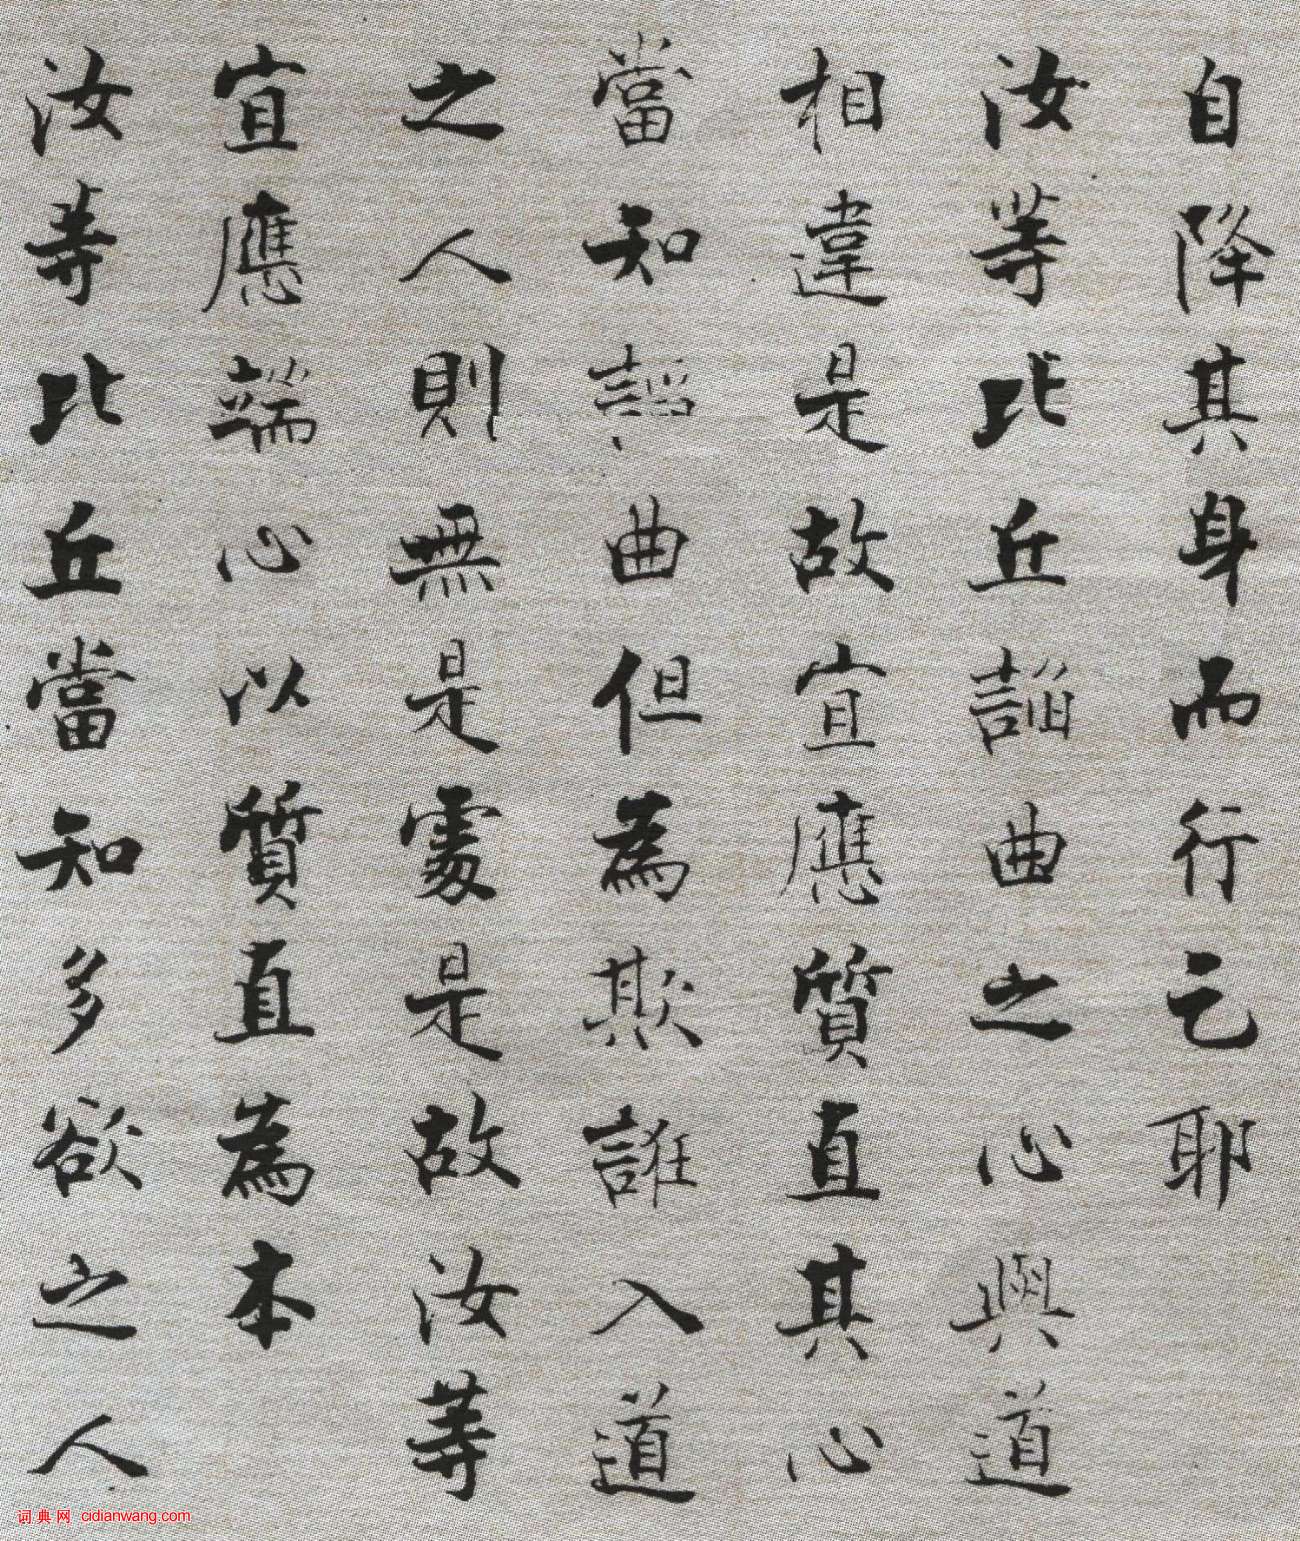 自降其身而行乞耶
汝等比丘諂曲之心與道
相違是故宜應質直其心
當知諂曲但為欺誑入道
之人則無是處是故汝等
宜應端心以質直為本
汝等比丘當知多欲之人
词典网 cidianwang.com